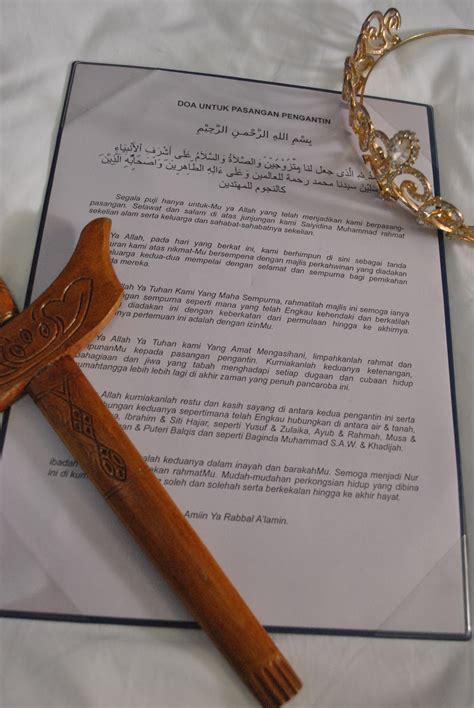 DOA UNTUK PASANGAN PENGANTIN
بِسْمِ اللهِ الرَّحْمنِ الرَّحِيْمِ
الَّذى جعل لنا مِتْزَوِجَيْنَ وَالصَّلاةُ وَالسَّلامُ عَلى أَشْرَفِ الأَنْبِيَاءِ
سيدنا محمد رحمة للعالمين وَعَلى ءَالِهِ الطَّاهِرِيْنَ وَاصْحَابِهِ الَّذِيْنَ
كالنجوم للمهتدين
Segala puji hanya untuk-Mu ya Allah yang telah menjadikan kami berpasang-
pasangan. Selawat dan salam di atas junjungan kami Saiyidina Muhammad rahmat
sekelian alam serta keluarga dan sahabat-sahabatnya sekelian.
Allah, pada hari yang berkat ini, kami berhimpun di sini sebagai tanda
kami atas nikmat-Mu bersempena dengan majlis perkahwinan yang diadakan
kedua-dua mempelai dengan selamat dan sempurna bagi pernikahan
mereka.
Allah Ya Tuhan Kami Yang Maha Sempurna, rahmatilah majlis ini semoga ianya
dengan sempurna seperti mana yang telah Engkau kehendaki dan berkatilah
diadakan ini dengan keberkatan dari permulaan hingga ke akhirnya.
pertemuan ini adalah dengan izinMu.
Ya Allah Ya Tuhan kami Yang Amat Mengasihani, limpahkanlah rahmat dan
kepada pasangan pengantin. Kurniakanlah keduanya ketenangan,
dan jiwa yang tabah menghadapi setiap dugaan dan cubaan hidup
lebih lebih lagi di akhir zaman yang penuh pancaroba ini.
Allah kurniakanlah restu dan kasih sayang di antara kedua pengantin ini serta
keduanya sepertimana telah Engkau hubungkan di antara air & tanah,
Ibrahim & Siti Hajar, seperti Yusuf & Zulaika, Ayub & Rahmah, Musa &
& Puteri Balqis dan seperti Baginda Muhammad S.A.W. & Khadijah.
keduanya dalam inayah dan barakahMu. Semoga menjadi Nur
ibadah rahmatMu. Mudah-mudahan perkongsian hidup yang dibina
ini di soleh dan solehah serta berkekalan hingga ke akhir hayat.
Amiin Ya Rabbal A'lamin.